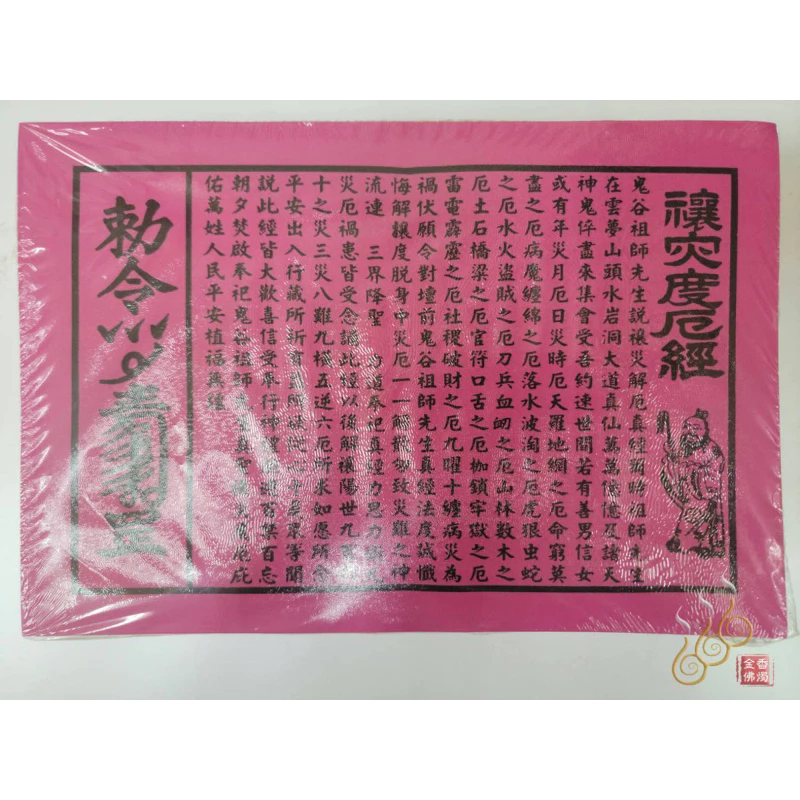 禳灾度厄經
鬼谷祖師先生説禳災解厄真經爾時祖師先生
在雲夢山頭水岩洞大道真仙萬萬億億及諸天
神鬼俘盡來集會受吾約速世間若有善男信女
或有年災月厄日災時厄天羅地網之厄命窮莫
盡之厄病魔纏綿之厄落水波淘之厄虎狼虫蛇
之厄水火盜賊之厄刀兵血衂之厄山林數木之
厄土石橋梁之厄官符口舌之厄枷鎖牢獄之厄
雷電霹靂之厄社稷破財之厄九曜十纏病災為
禍伏願令對壇前鬼谷祖師先生真經法度誠懺
悔解讓度脱身中災厄一一解 致災難之神
流連 三界降聖 道奉祀真經力恩力
災厄禍患皆受念誦此經以後解禳陽世九
十之災三災八難九橫五逆六厄所求如愿所
平安出入行藏所祈 所 眾等聞
説此經皆大歡喜信受奉行神 百集百忘
朝夕焚啟奉祀鬼谷祖師 真 厄庇
佑萬姓人民平安植福無疆
勅令
香燭
金佛